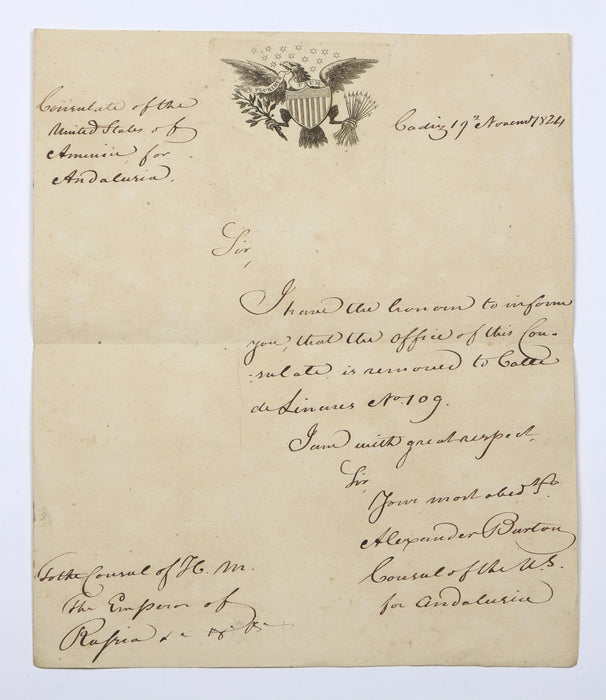 Consulate of the
United States of
America, for
Andalusia.
Cadiz 19th Novemr 1824
Sir,
I have the honour to inform
you, that the office of this Con-
sulate, is removed to Calle
de Linares No. 109.
I am with great respect.
Sir,
Your most obed St
Alexander Burton
Consul of the U.S.
for Andalusia
To the Consul of H. M.
The Emperor of
Russia &c &c &c